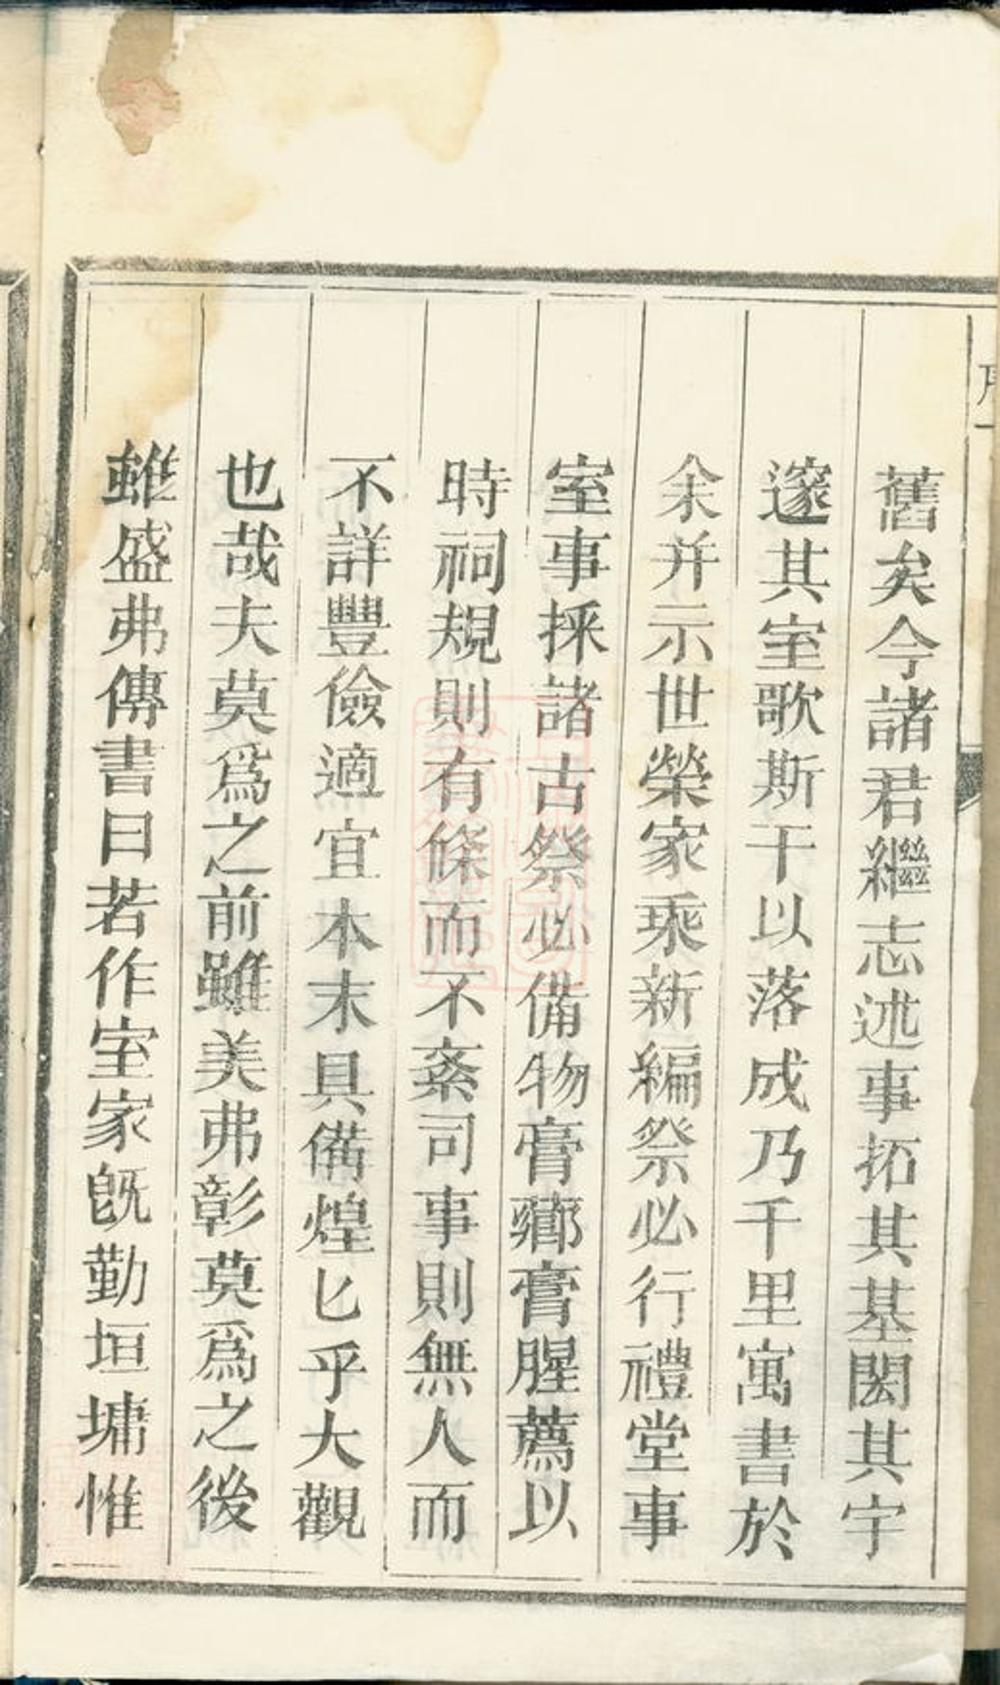 舊矣今諸君繼志述事拓其基閎其宇
邃其室歌斯干以落成乃千里寓書於
余并示世榮家乘新編祭必行禮堂事
室事採諸古祭必備物膏薌膏腥薦以
時祠規則有條而不紊司事則無人而
不詳豐儉適宜本末具備煌匕乎大觀
也哉夫莫爲之前雖美弗彰莫爲之後
雖盛弗傳書曰若作室家旣勤垣墉惟